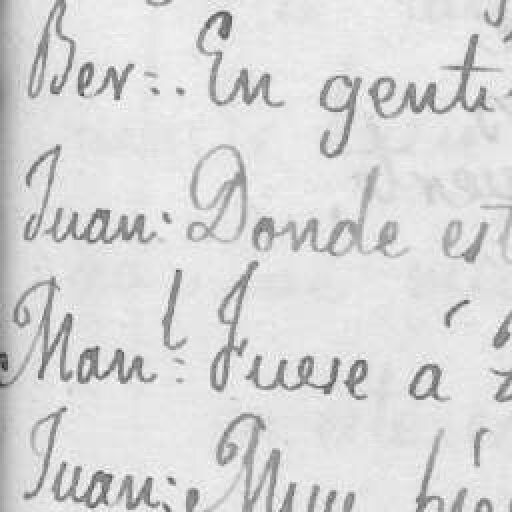 Ber:. En genti
Juan: Donde est
Man.l: Fuese á
Juan: Muy bie